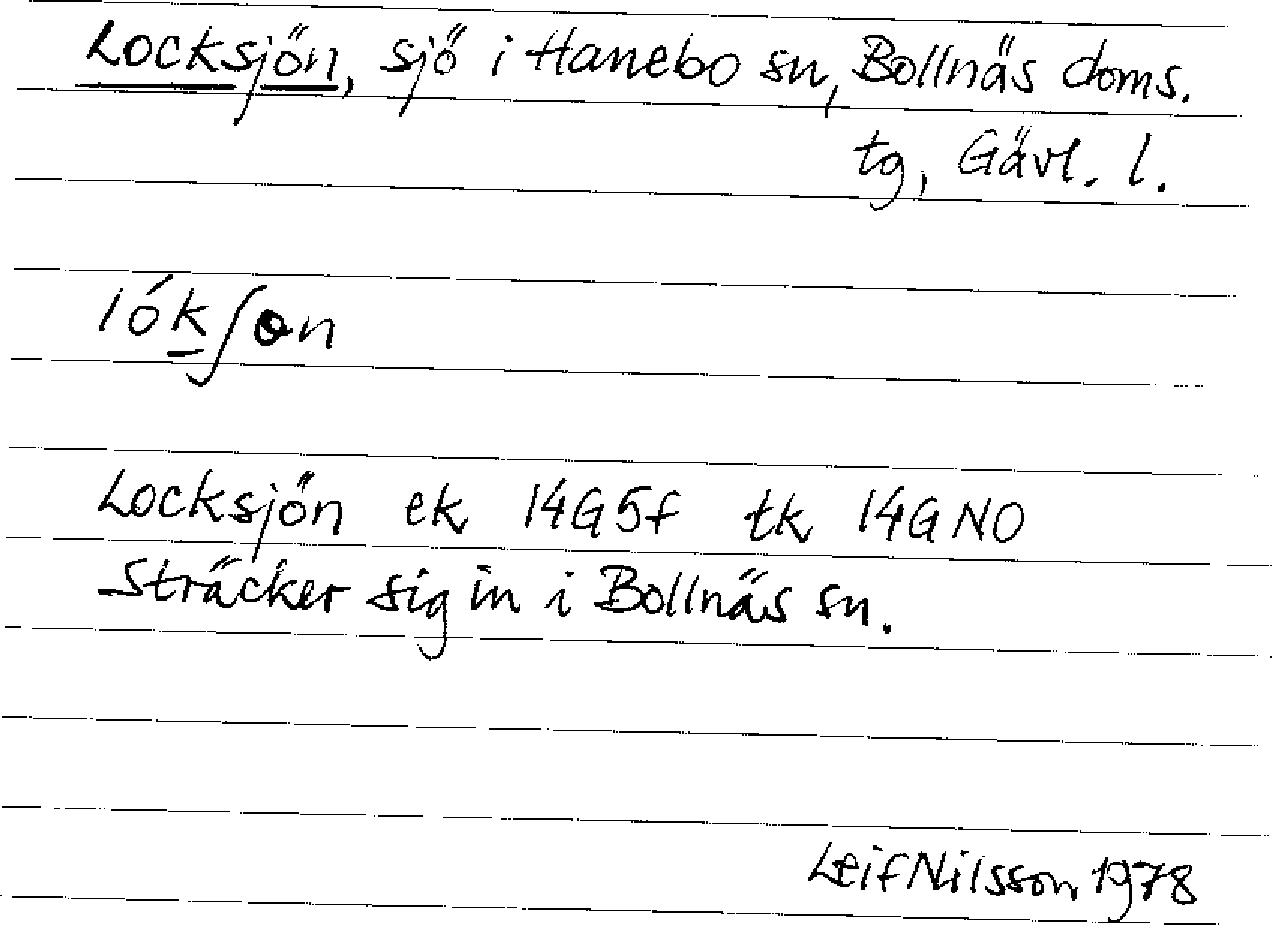 Locksjön, sjö i Hanebo sn, Bollnäs doms.
tg, Gävl. l.
lókʃɵn
Locksjön ek 14G5f tk 14GNO
Sträcker sig in i Bollnäs sn.
Leif Nilsson 1978